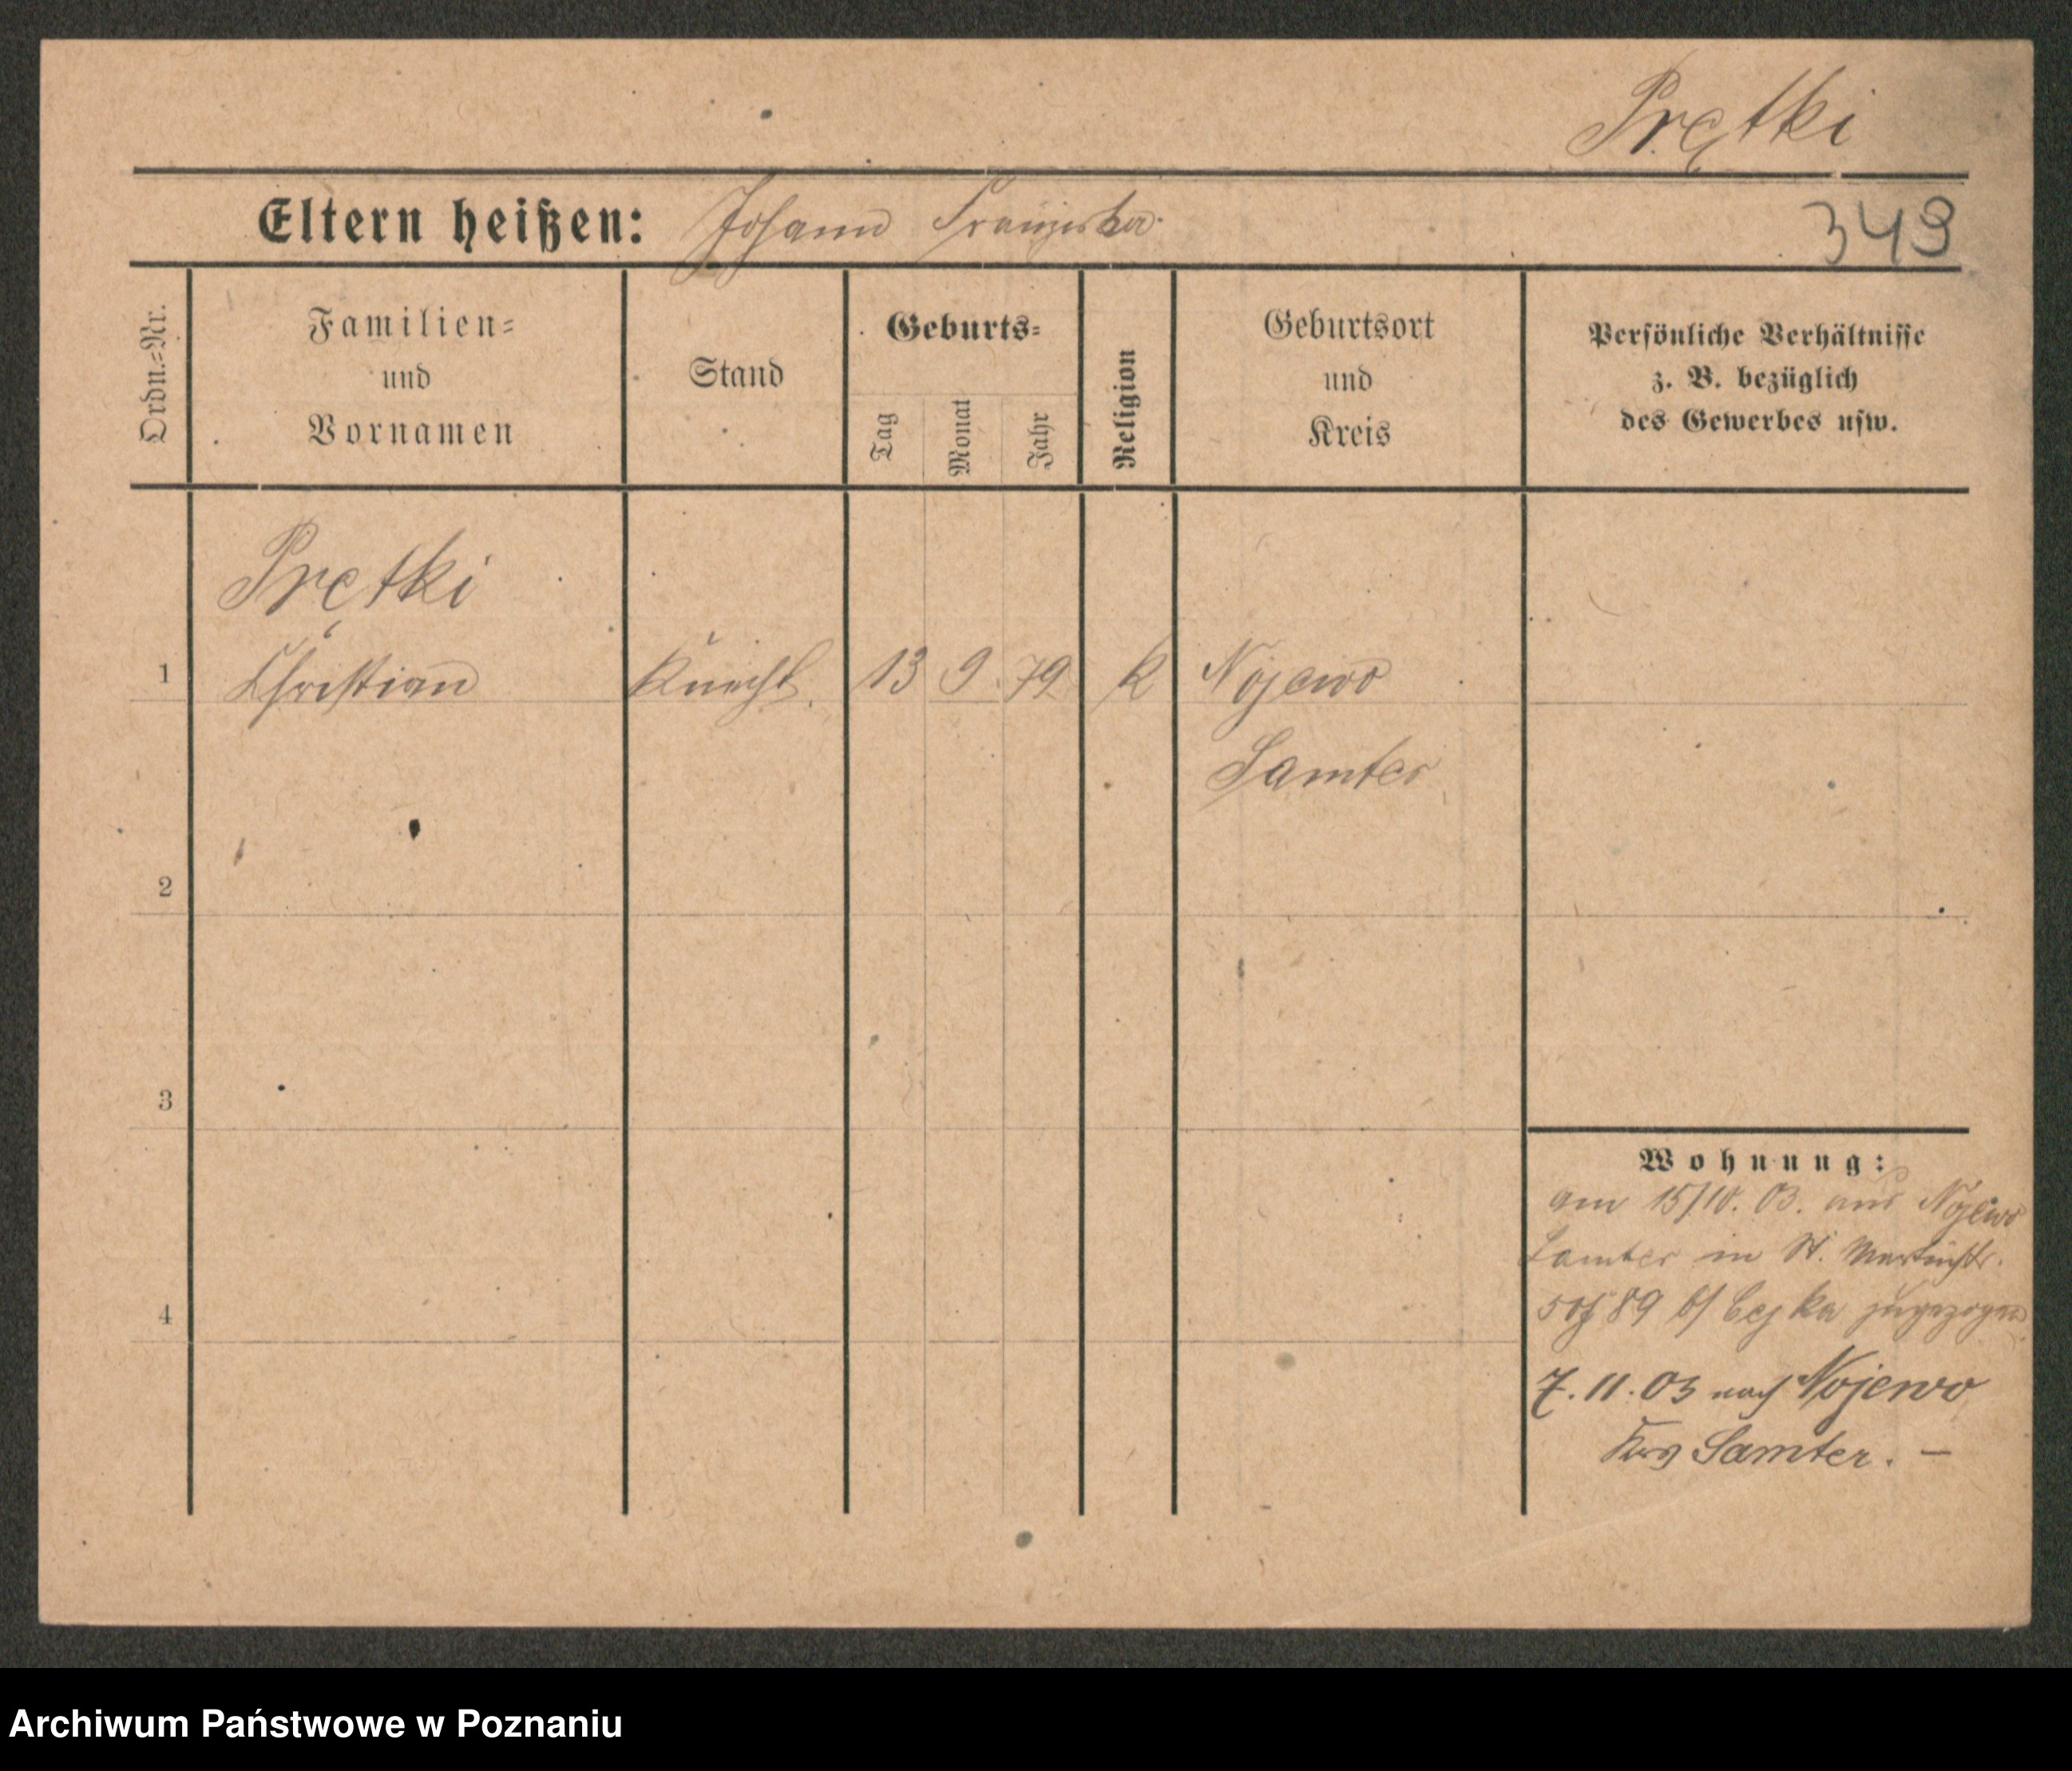 Prętki
Eltern heißen: Johann Franziska
349
Ordn.=Nr.
Familien=
und
Vornamen
Stand
Geburts=
Tag
Monat
Jahr
Religion
Geburtsort
und
Kreis
Persönliche Verhältnisse
z. B. bezüglich
des Gewerbes usw.
Prętki
1 Christian Knecht 13 9 79 k Nojewo
Samter
2
3
4
Wohnung:
am 15/10. 03. aus Nojewo
Samter in St. Martinstr.
89 b/ zugezogen
7. 11. 03 nach Nojewo
Krs Samter. —
Archiwum Państwowe w Poznaniu